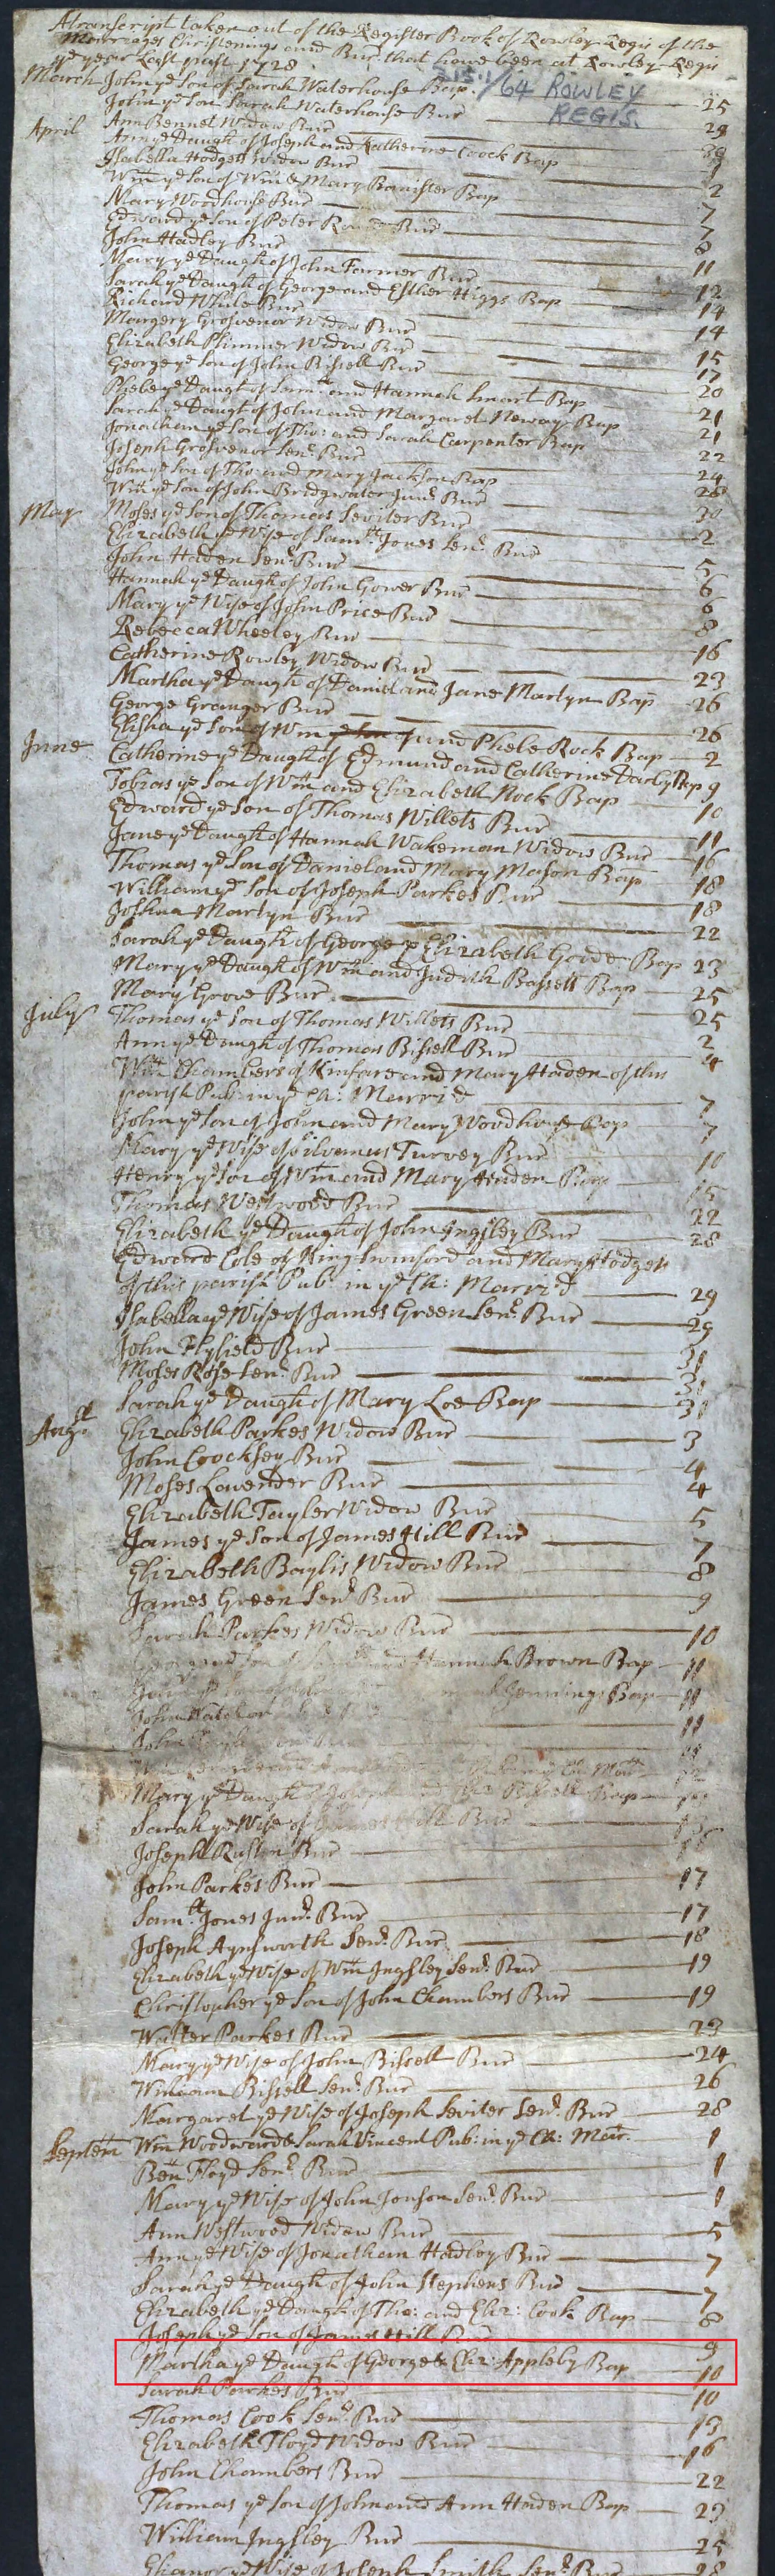 A transcript taken out of the Register Book of Rowley Regis of the
Marriages Christenings and Bur: that have been at Rowley Regis
ye year last past 1728
215.1/64 ROWLEY
REGIS.
March John ye Son of Sarah Waterhouse Bap. 25
John ye Son Sarah Waterhouse Bur 28
Ann Bennet Widow Bur
April Ann ye Daugh of Joseph and Katherine Coock Bap 1
Isabella Hodgets Widow Bur
Wm ye Son of Wm & Mary Banister Bap 2
Mary Woodhouse Bur 7
Edward ye Son of Peter Bur 7
John Hadley Bur 8
Mary ye Daugh of John Farmer Bur 11
Sarah ye Daugh of George and Esther Higgs Bap 12
Richard White Bur 14
Margery Grosvenor Widow Bur 14
Elizabeth Plimmer Widow Bur 15
George ye Son of John Bissell Bur 17
Phebe ye Daugh of and Hannah Smart Bap 20
Sarah ye Daugh of John and Margaret Neway Bap 21
Jonathan ye Son of Tho: and Sarah Carpenter Bap 21
Joseph Grosvenor Senr. Bur 22
John ye Son of Tho: and Mary Jackson Bap 24
Wm ye Son of John Bridgwater Junr. Bur 28
Moses ye Son of Thomas Seviter Bur 30
May Elizabeth ye Wife of Samll. Jones Senr. Bur 2
John Haden Senr. Bur 5
Hannah ye Daugh of John Gower Bur 6
Mary ye Wife of John Price Bur 6
Rebecca Wheeley Bur 8
Catherine Rowley Widow Bur 16
Martha ye Daugh of Daniel and Jane Martyn Bap 23
George Granger Bur 26
Elisha ye Son of Wm Phebe Rock Bap 26
June Catherine ye Daugh of Edmund and Catherine Darby Bap 2
Tobias ye Son of Wm and Elizabeth Nock Bap 9
Edward ye Son of Thomas Willets Bur 10
Jane ye Daugh of Hannah Wakeman Widow Bur 11
Thomas ye Son of Daniel and Mary Mason Bap 16
William ye Son of Joseph Parkes Bur 18
Joshua Martyn Bur 18
Sarah ye Daugh of George & Elizabeth Goode Bap 22
Mary ye Daugh of Wm and Judith Bassett Bap 23
Mary Grove Bur 25
Thomas ye Son of Thomas Willets Bur 25
July Ann ye Daugh of Thomas Bissell Bur 2
Wm Chambers of Kinfare and Mary Haden of this 4
parish Pub: in ye Ch: Marri'd
John ye Son of John and Mary Woodhouse Bap 7
Mary ye Wife of Silvanus Turvey Bur 7
Henry ye Son of Wm and Mary Haden Bap 10
Thomas Westwood Bur 15
Elizabeth ye Daugh of John Ingsley Bur 22
Edward Cole of Kingswinford and Mary Hodgets 28
of this parish Pub: in ye Ch: Marri'd
Isabella ye Wife of James Green Senr. Bur 29
John Flyfield Bur 29
Moses Rose Senr. Bur 31
Sarah ye Daugh of Mary Loe Bap 31
Augst Elizabeth Parkes Widow Bur 3
John Coocksey Bur 4
Moses Lavender Bur 4
Elizabeth Tayler Widow Bur 5
James ye Son of James Hill Bur 7
Elizabeth Baylis Widow Bur 8
James Green Senr Bur 9
Sarah Parkes Widow Bur 10
Hannah Brown Bap 11
Jennings Bap 11
John 11
John
Mary ye Daugh of Bissell Bap
Sarah ye Wife of Hill Bur
Joseph Ruston Bur
John Parkes Bur 17
Samll. Jones Junr. Bur 17
Joseph Aynsworth Senr. Bur 18
Elizabeth ye Wife of Wm Ingsley Senr. Bur 19
Christopher ye Son of John Chambers Bur 19
Walter Parkes Bur 23
Mary ye Wife of John Bissell Bur 24
William Bissell Senr. Bur 26
Margaret ye Wife of Joseph Seviter Senr. Bur 28
Septem Wm Woodward & Sarah Vincent Pub: in ye Ch: Mar. 1
Ben Floyd Senr. Bur 1
Mary ye Wife of John Jonson Senr. Bur 1
Ann Westwood Widow Bur 5
Ann ye Wife of Jonathan Hadley Bur 7
Sarah ye Daugh of John Stephens Bur 7
Elizabeth ye Daugh of Tho: and Eliz: Cook Bap 8
Joseph ye Son of James Hill Bur 9
Martha ye Daugh of George & Eliz: Appleby Bap 10
Sarah Parkes Bur 10
Thomas Cook Senr. Bur 13
Elizabeth Floyd Widow Bur 16
John Chambers Bur 22
Thomas ye Son of John and Ann Haden Bap 23
William Ingsley Bur 25
Elianor ye Wife of Joseph Smith Senr. Bur 28